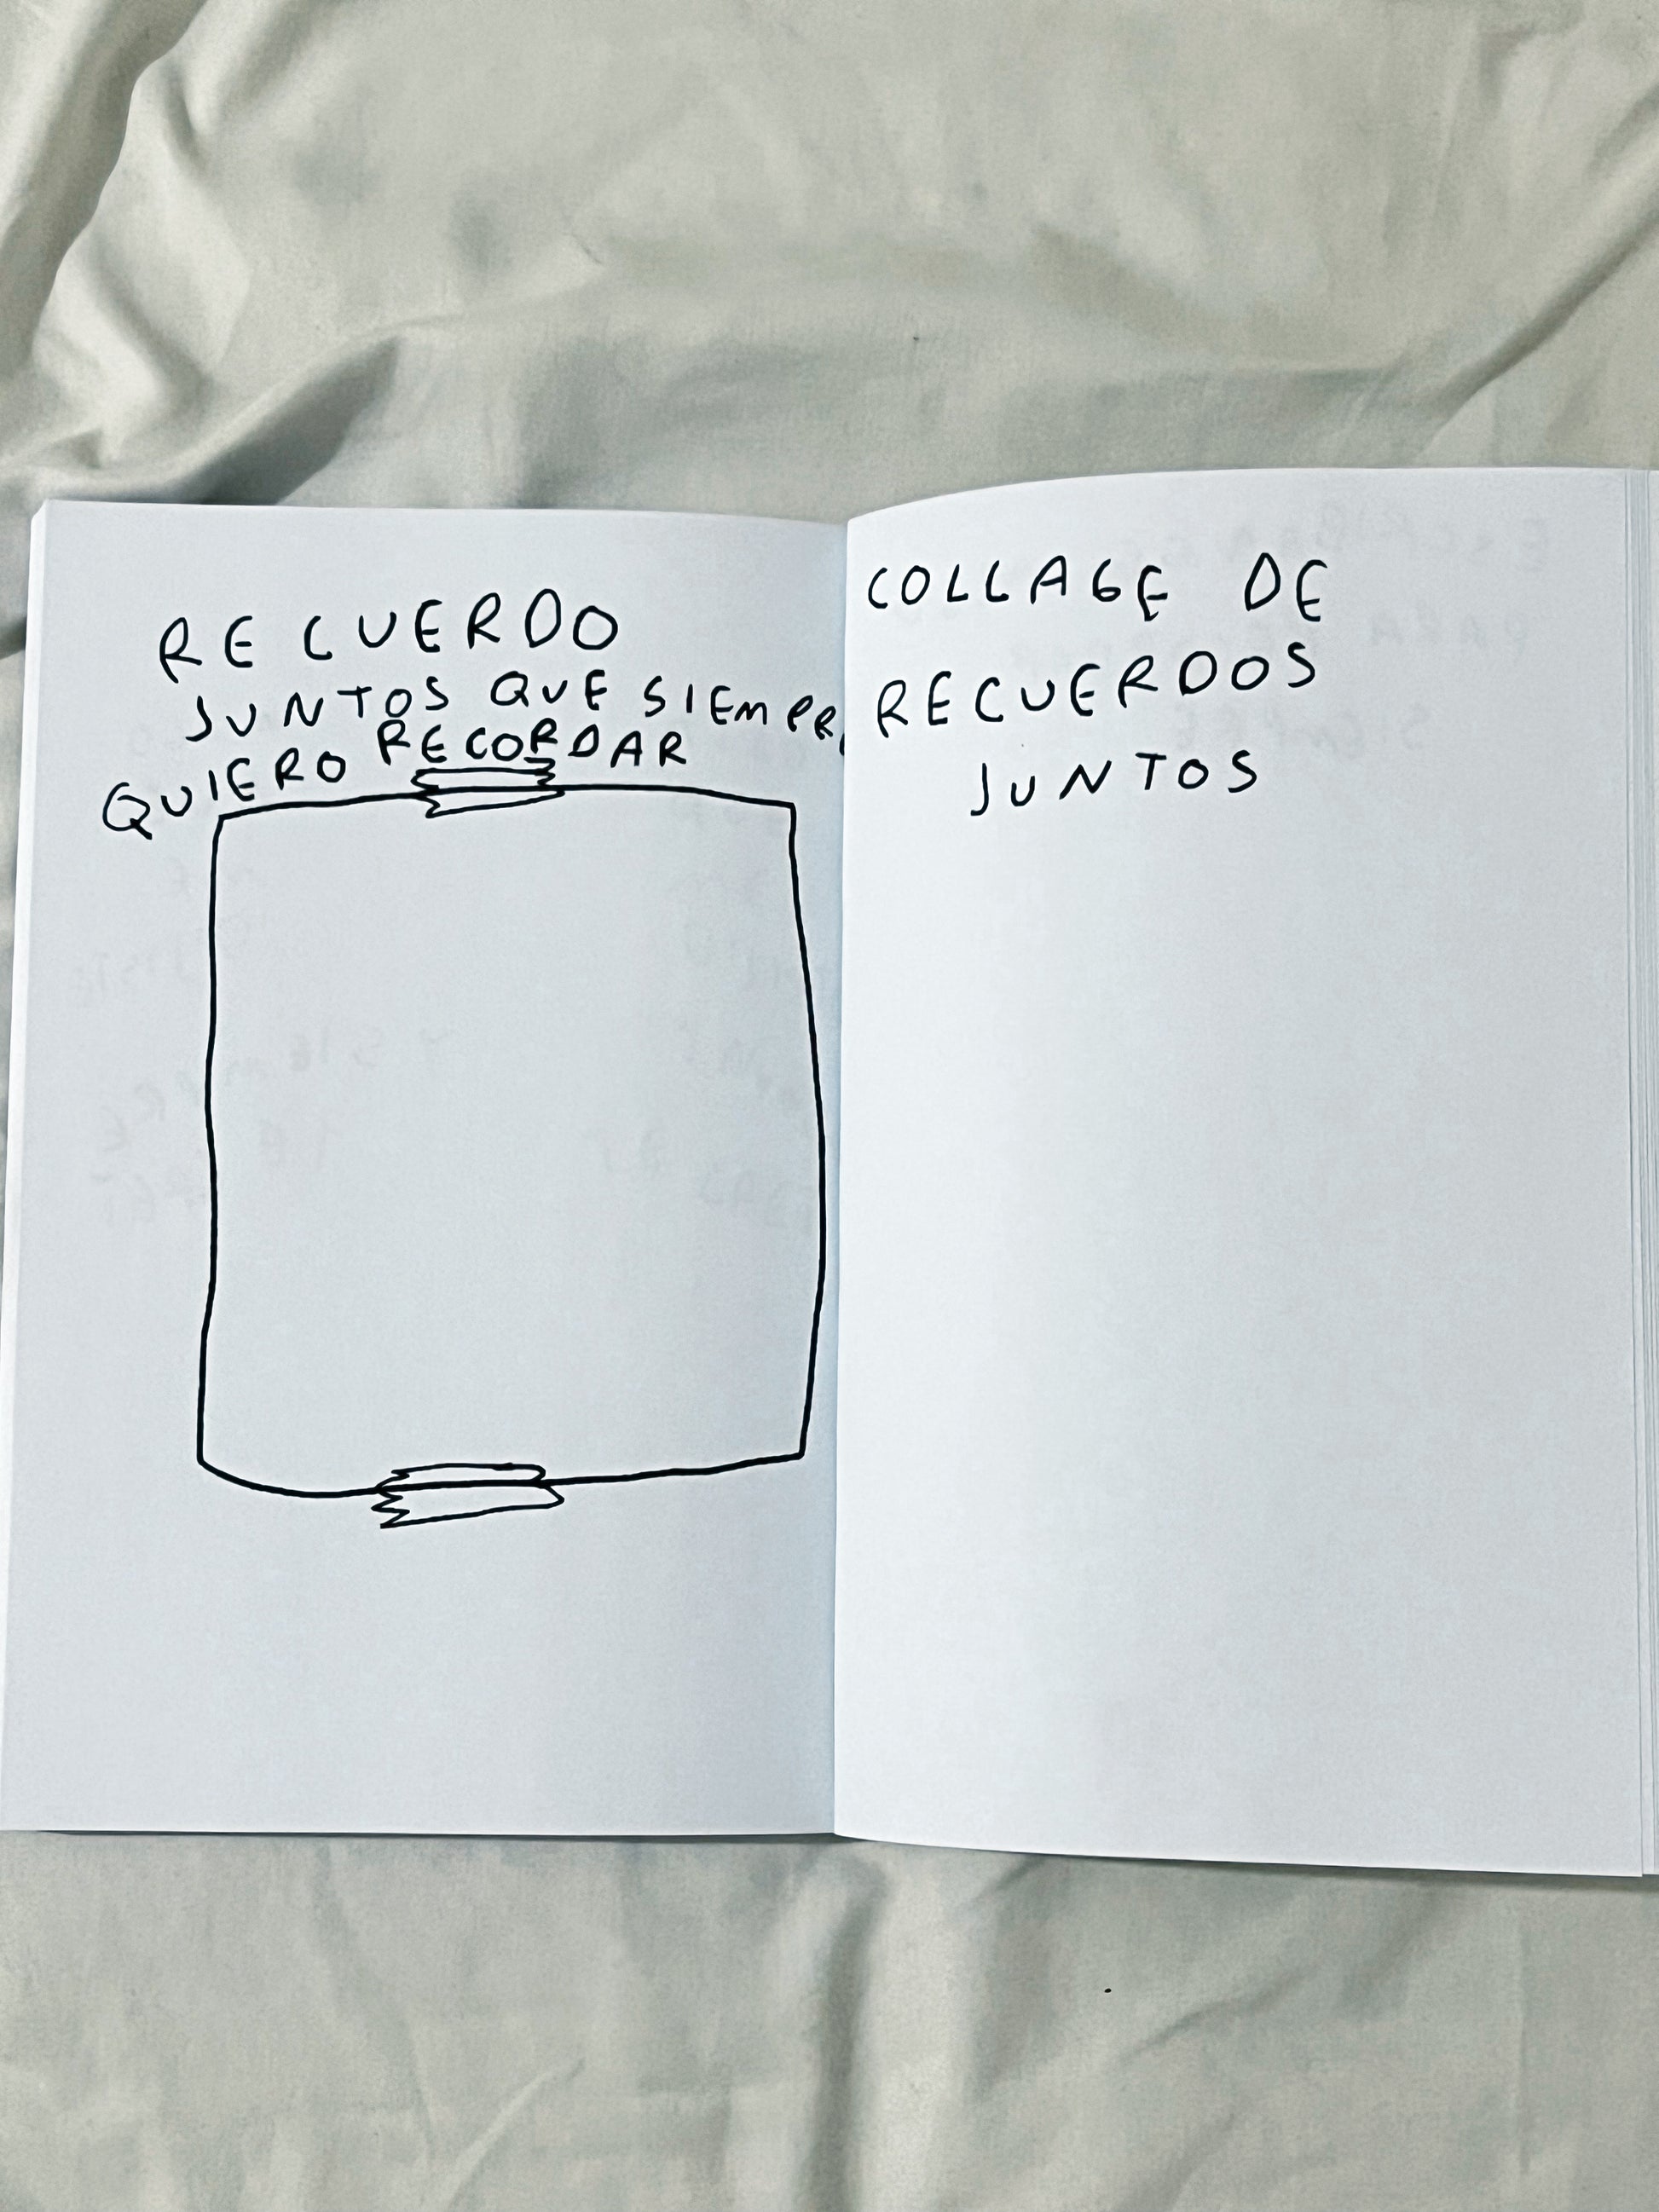 RECUERDO
JUNTOS QUE SIEMPRE
QUIERO RECORDAR
COLLAGE DE
RECUERDOS
JUNTOS